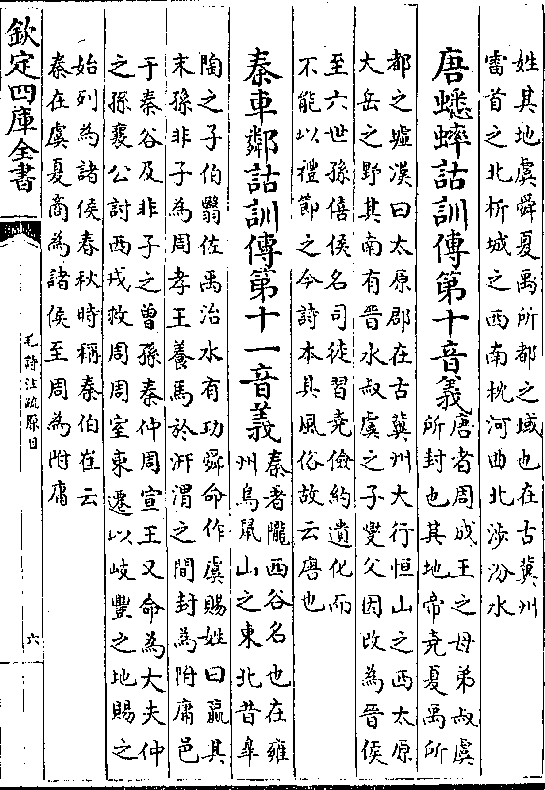 姓其地虞舜夏禹所都之域也在古冀州
雷首之北析城之西南枕河曲北涉汾水
唐蟋蟀詁訓傳第十音義
唐者周成王之母弟叔虞
所封也其地帝堯夏禹所
都之墟漢曰太原郡在古冀州大行恒山之西太原
大岳之野其南有晉水叔虞之子燮父因改為晉侯
至六世孫僖侯名司徒習堯儉約遺化而
不能以禮節之今詩本其風俗故云唐也
秦車鄰詁訓傳第十一音義
秦者隴西谷名也在雍
州鳥鼠山之東北昔臯
陶之子伯翳佐禹治水有功舜命作虞賜姓曰嬴其
末孫非子為周孝王養馬於汧渭之間封為附庸邑
于秦谷及非子之曾孫秦仲周宣王又命為大夫仲
之孫襄公討西戎救周周室東遷以岐豐之地賜之
始列為諸侯春秋時稱秦伯崔云
秦在虞夏商為諸侯至周為附庸
欽定四庫全書
毛詩注疏原目
六